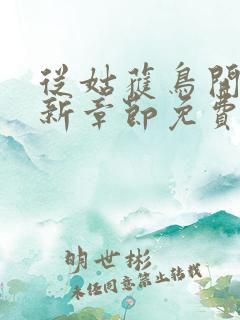 從姑獲鳥開
新章節免費
明世彬
未經同意禁止轉載